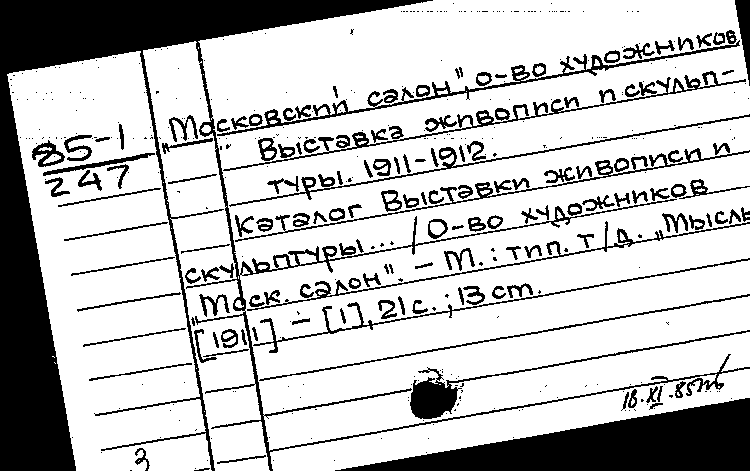 85-1
247
"Московский салон", о-во художников
" Выставка живописи и скульп-
туры. 1911-1912.
Каталог Выставки живописи и
скульптуры... / О-во художников
"Моск. салон". - М.: тип. т/д. "Мысль
[1911]. - [1], 21 с.; 13 cm.
18.XI.85
3